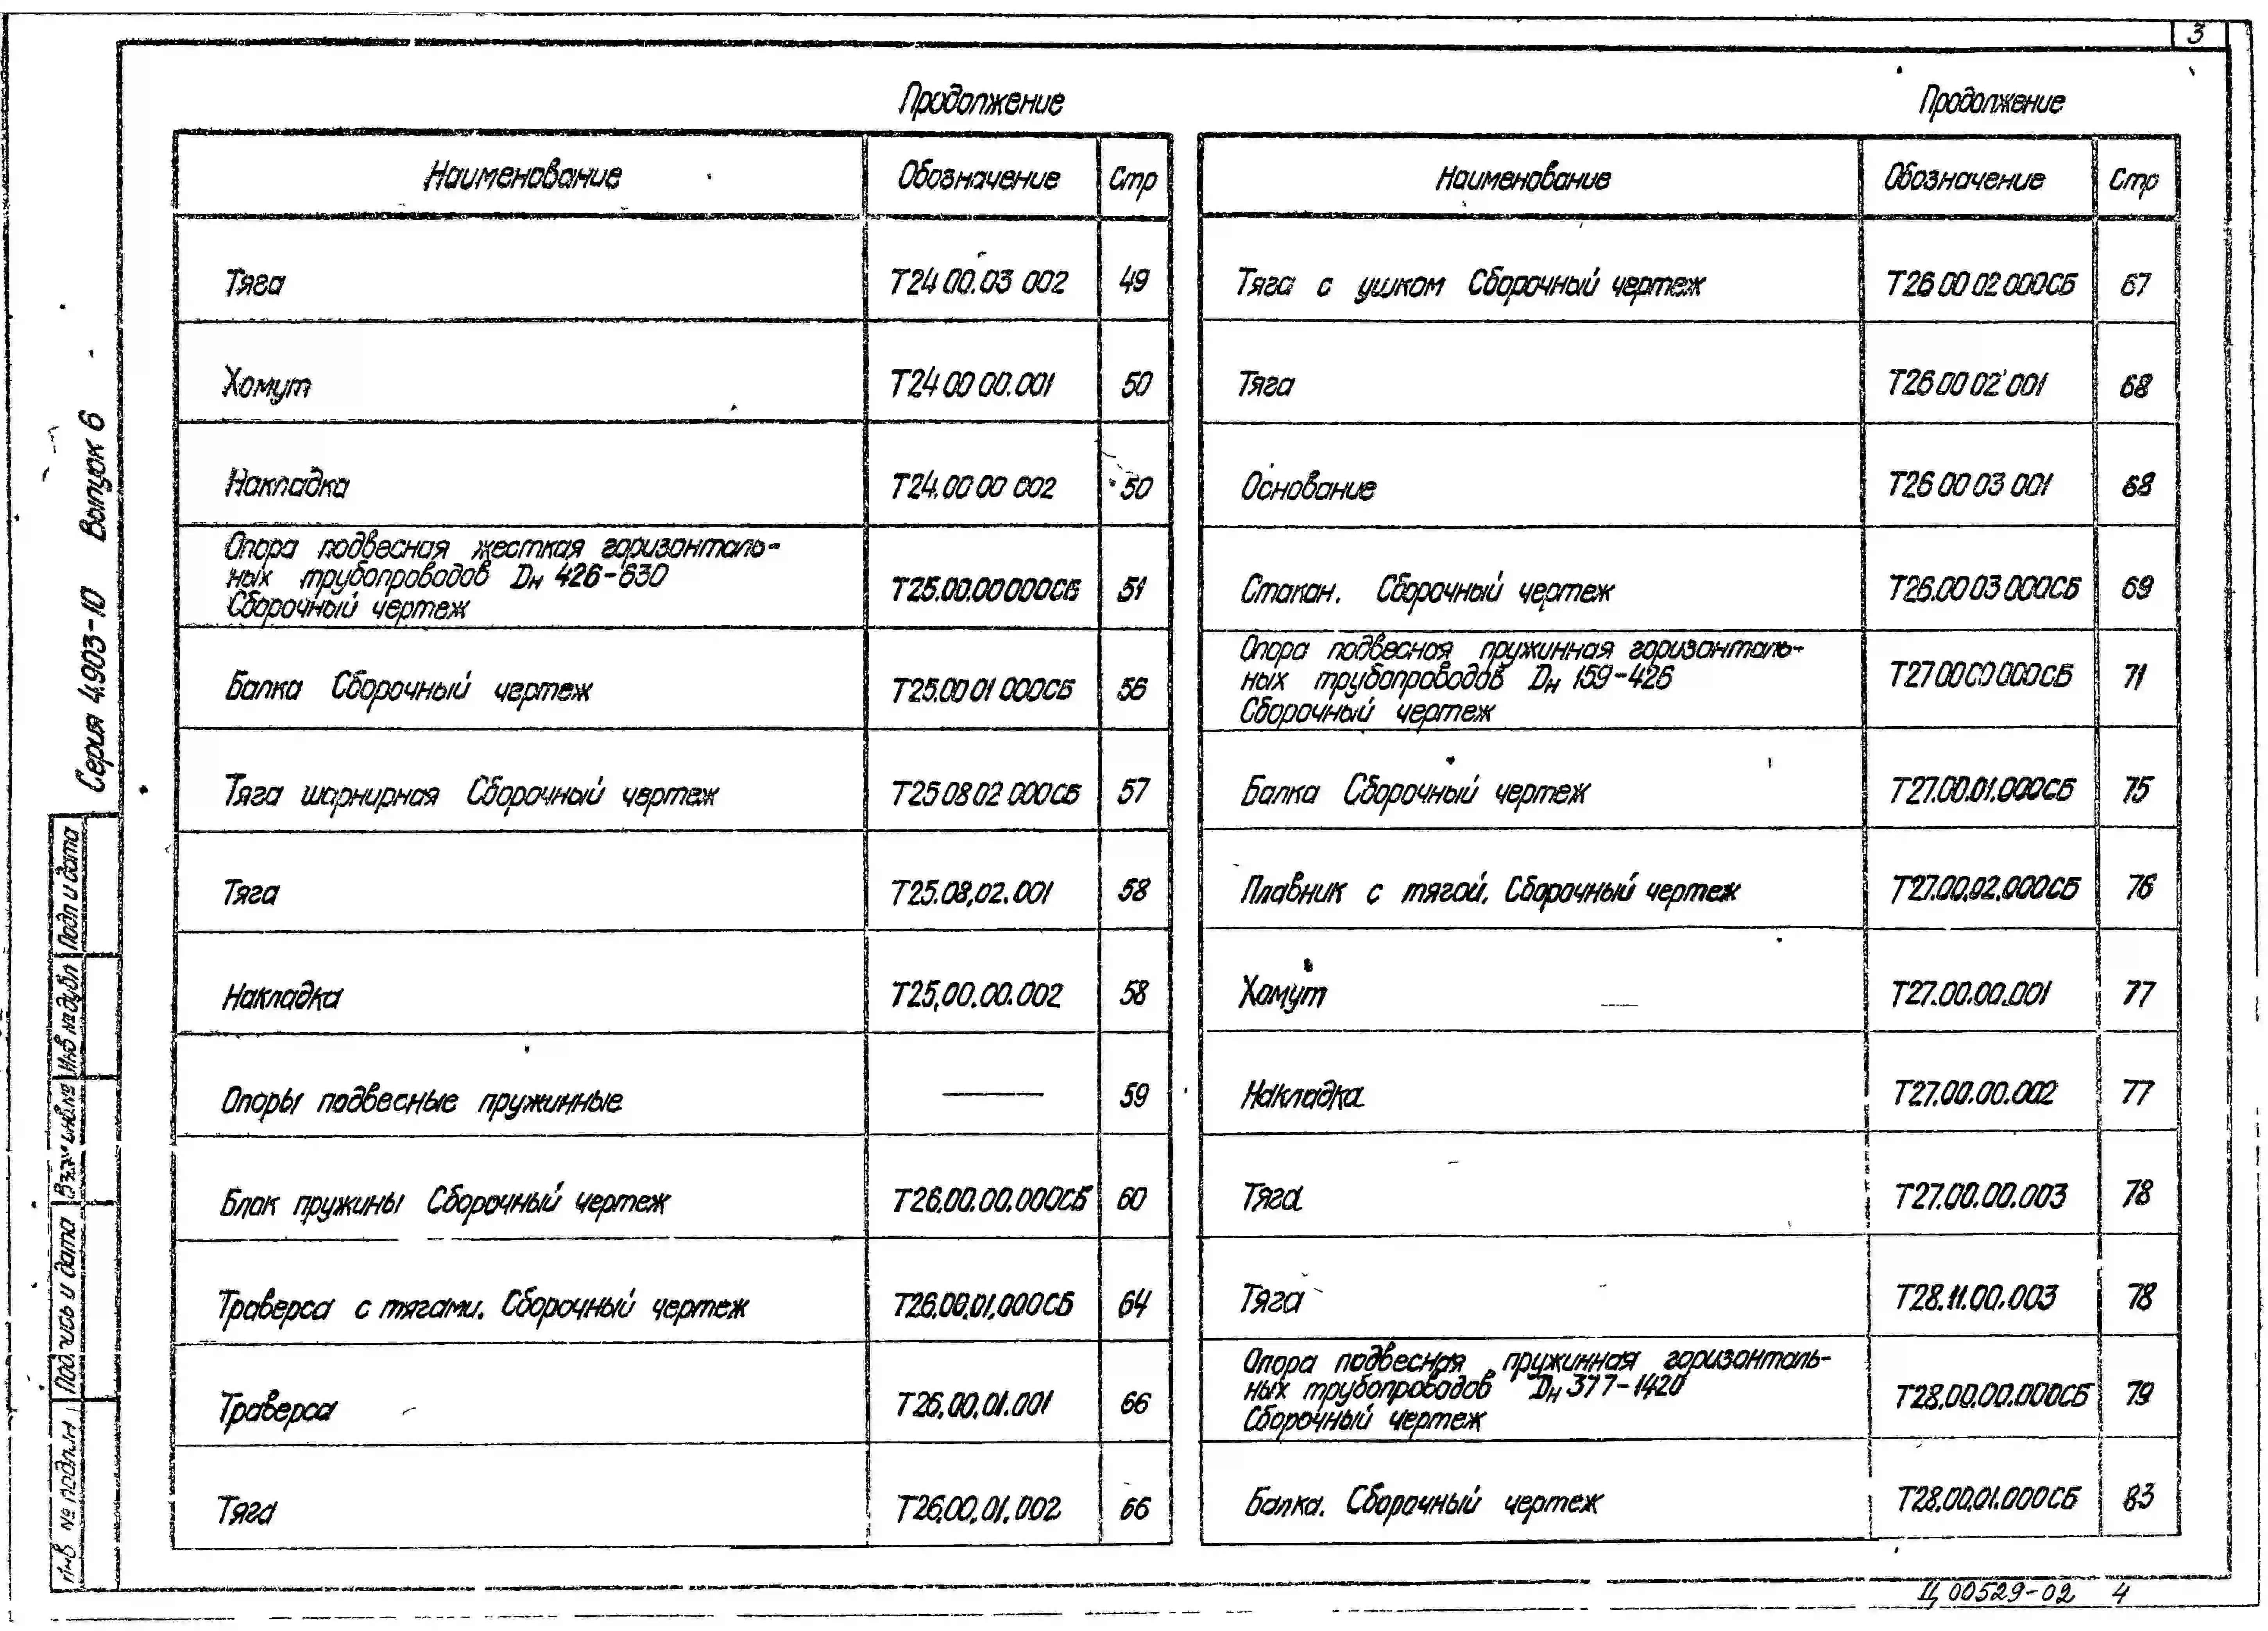 3
Продолжение
Наименование Обозначение Стр
Тяга Т24.00.03 002 49
Хомут Т24 00 00.001 50
Накладка Т24.00 00 002 50
Опора подвесная жесткая горизонталь-
ных трубопроводов Dн 426-630
Сборочный чертеж Т25.00.00 000СБ 51
Балка Сборочный чертеж Т25.00 01 000СБ 56
Тяга шарнирная Сборочный чертеж Т25 08 02 000СБ 57
Тяга Т25.08.02.001 58
Накладка Т25.00.00.002 58
Опоры подвесные пружинные — 59
Блок пружины Сборочный чертеж Т26.00.00.000СБ 60
Траверса с тягами. Сборочный чертеж Т26.00.01.000СБ 64
Траверса Т26.00.01.001 66
Тяга Т26.00.01.002 66
Продолжение
Наименование Обозначение Стр
Тяга с ушком Сборочный чертеж Т26 00 02 000СБ 67
Тяга Т26 00 02 001 68
Основание Т26 00 03 001 68
Стакан. Сборочный чертеж Т26.00 03 000СБ 69
Опора подвесная пружинная горизонталь-
ных трубопроводов Dн 159-426
Сборочный чертеж Т27 00 00 000СБ 71
Балка Сборочный чертеж Т27.00.01.000СБ 75
Плавник с тягой. Сборочный чертеж Т27.00.02.000СБ 76
Хомут Т27.00.00.001 77
Накладка Т27.00.00.002 77
Тяга Т27.00.00.003 78
Тяга Т28.11.00.003 78
Опора подвесная пружинная горизонталь-
ных трубопроводов Dн 377-1420
Сборочный чертеж Т28.00.00.000СБ 79
Балка. Сборочный чертеж Т28.00.01.000СБ 83
Серия 4.903-10 Выпуск 6
Инв № подл.
Подпись и дата
Взам инв.№
Инв № дубл
Подп и дата
Ц 00529-02 4